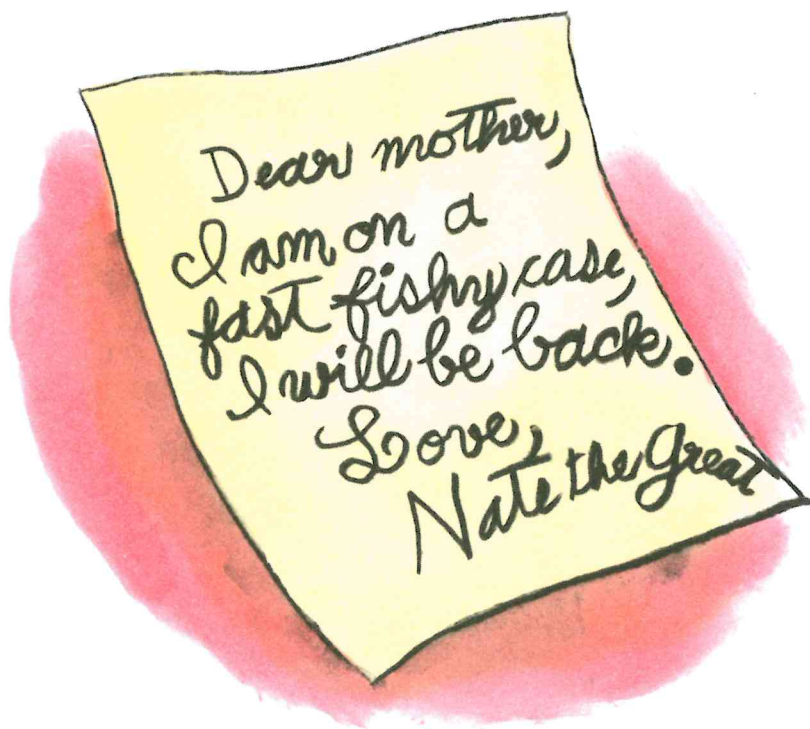 Dear mother,
I am on a
fast fishy case,
I will be back.
Love,
Nate the Great